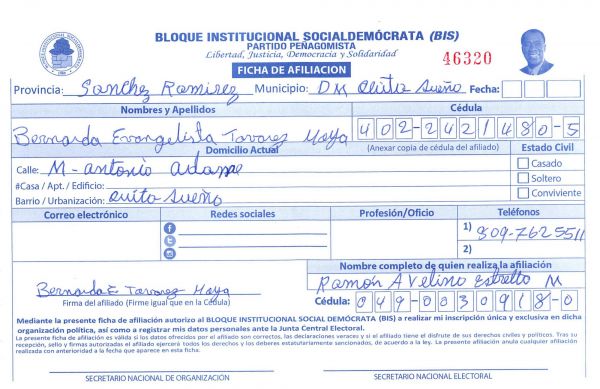 BLOQUE INSTITUCIONAL SOCIALDEMÓCRATA (BIS)
PARTIDO PEÑAGOMISTA
Libertad, Justicia, Democracia y Solidaridad
46320
FICHA DE AFILIACION
Provincia: Sanchez Ramirez Municipio: DM Quita Sueño Fecha:
Nombres y Apellidos Cédula
Bernarda Evangelista Tavarez Maya 402-2421480-5
Domicilio Actual (Anexar copia de cédula del afiliado) Estado Civil
Calle: M- antonio adame Casado
#Casa / Apt. / Edificio: Soltero
Barrio / Urbanización: quita sueño Conviviente
Correo electrónico Redes sociales Profesión/Oficio Teléfonos
1) 809-7625511
2)
Nombre completo de quien realiza la afiliación
Bernarda E Tavarez Maya Ramón Avelino M
Firma del afiliado (Firme igual que en la Cédula) Cédula: 049-0030918-0
Mediante la presente ficha de afiliación autorizo al BLOQUE INSTITUCIONAL SOCIAL DEMÓCRATA (BIS) a realizar mi inscripción única y exclusiva en dicha
organización política, así como a registrar mis datos personales ante la Junta Central Electoral.
La presente ficha de afiliación es válida si los datos ofrecidos por el afiliado son correctos, las declaraciones veraces y si el afiliado tiene el disfrute de sus derechos civiles y políticos. Tras su
recepción, sello y firmas autorizadas el afiliado ejercerá todos los derechos y los deberes estatutariamente sancionados, de acuerdo a la ley. La presente afiliación anula cualquier afiliación
realizada con anterioridad a la fecha que aparece en esta ficha.
SECRETARIO NACIONAL DE ORGANIZACIÓN SECRETARIO NACIONAL ELECTORAL